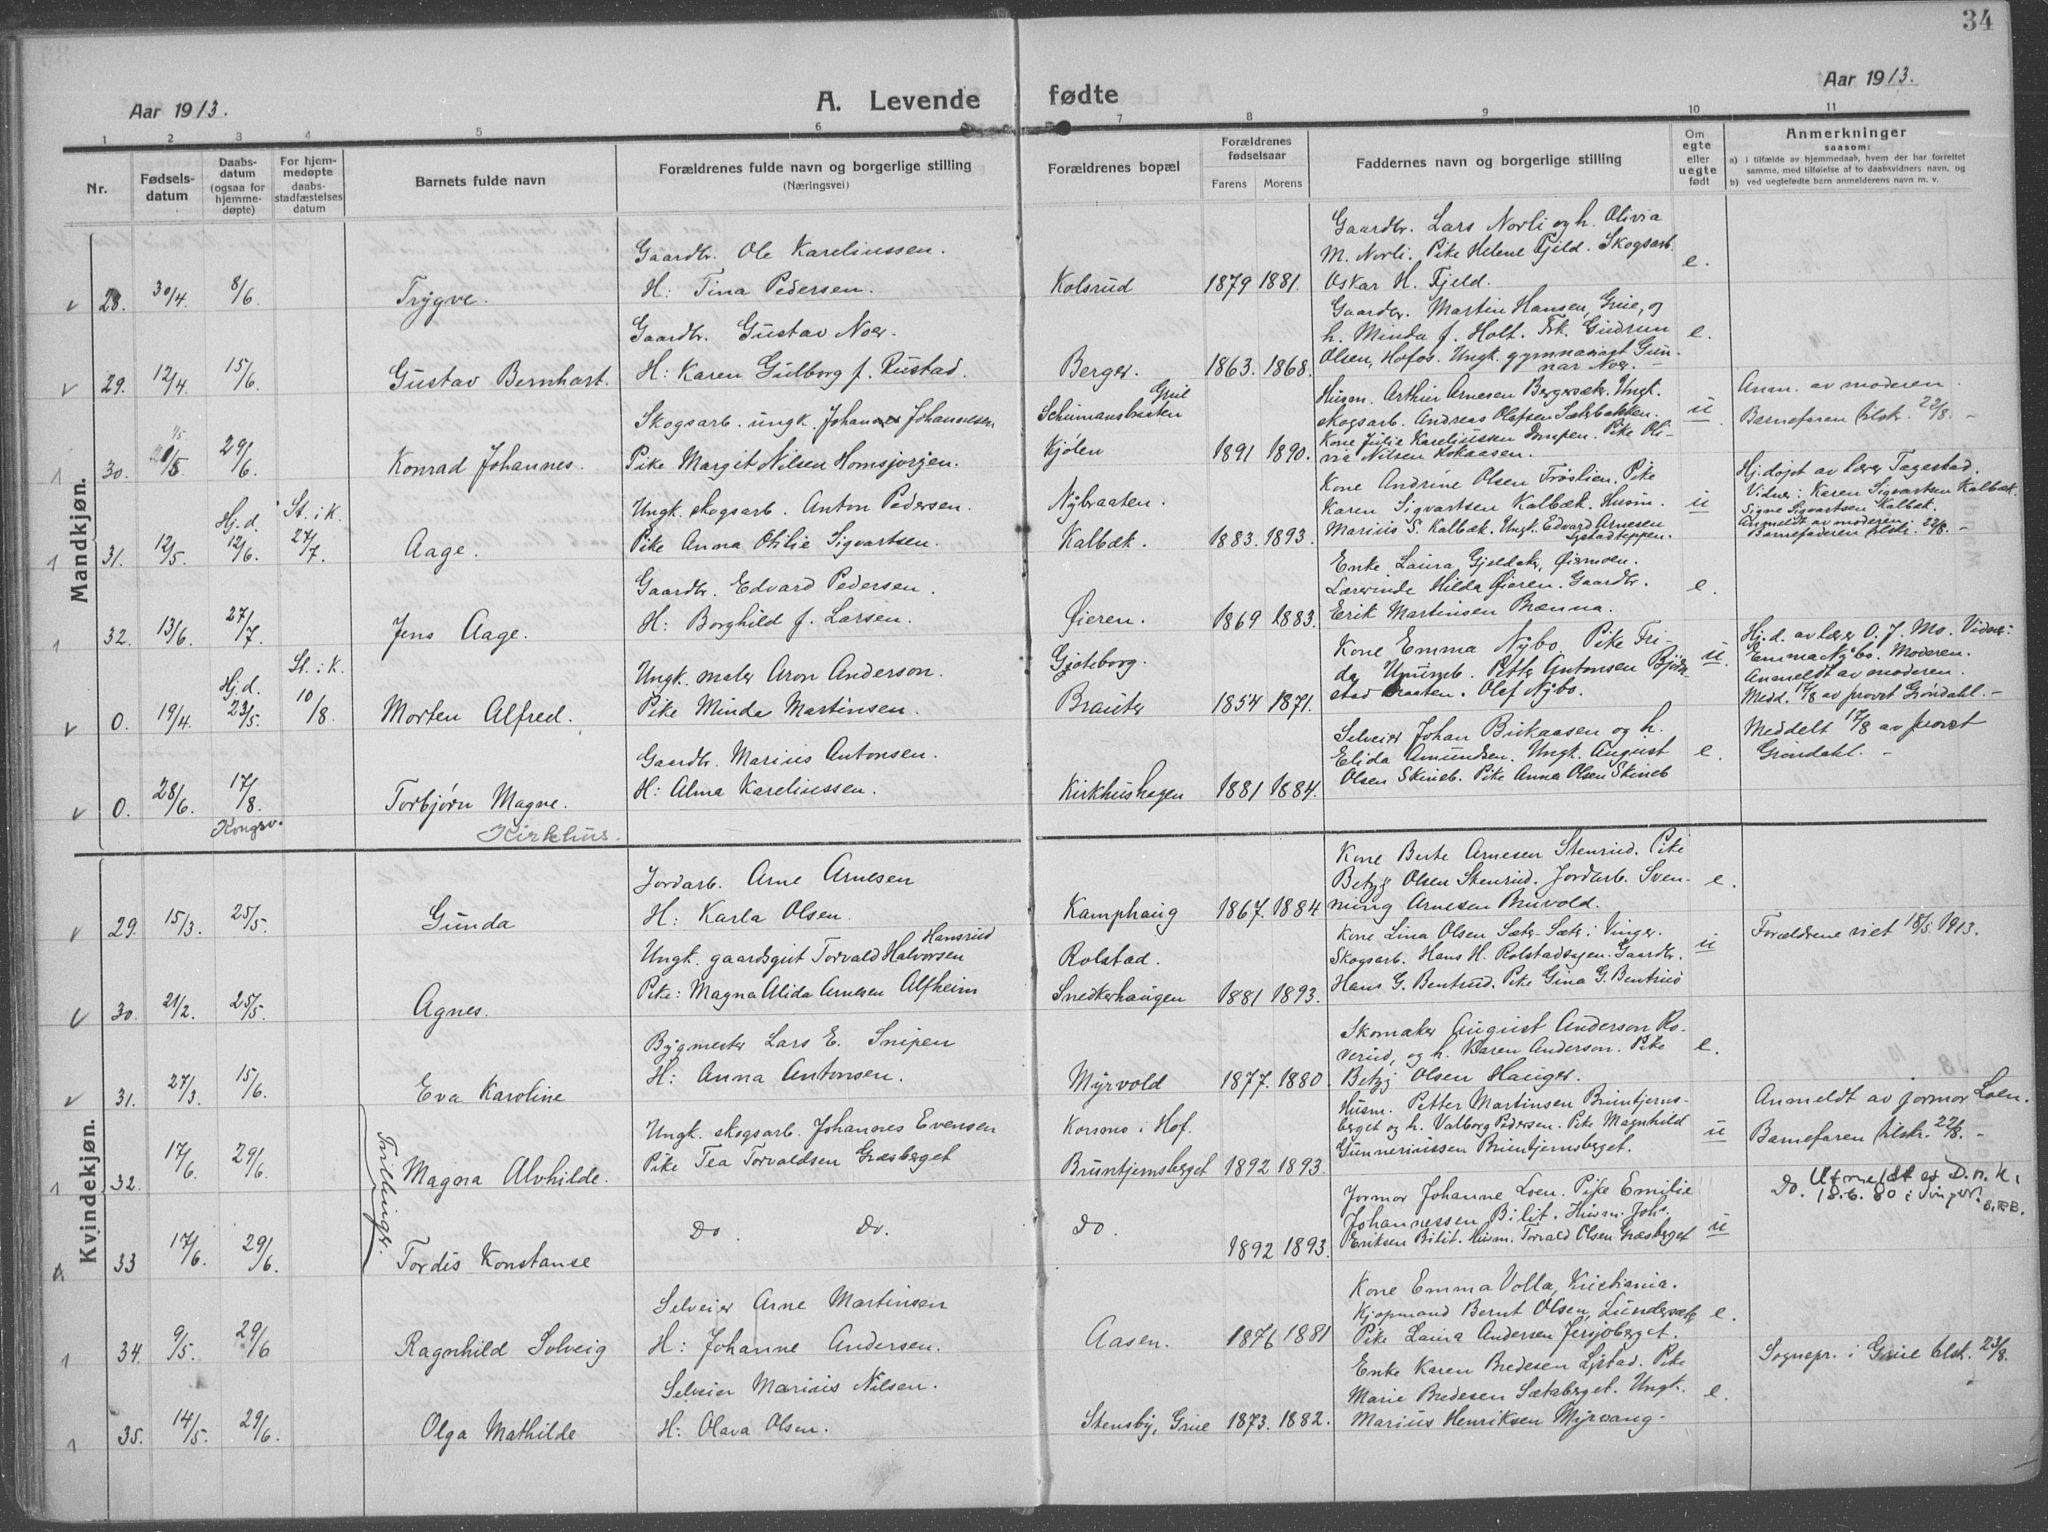 34
Aar 1913.
A. Levende fødte
Aar 1913.
1 2 3 4 5 6 7 8 9 10 11
Nr.
Fødsels-
datum
Daabs-
datum
(ogsaa for
hjemme-
døpte)
For hjem-
medøpte
daabs-
stadfæstelses
datum
Barnets fulde navn
Forældrenes fulde navn og borgerlige stilling
(Næringsvei)
Forældrenes bopæl
Forældrenes
fødselsaar
Farens Morens
Faddernes navn og borgerlige stilling
Om
egte
eller
uegte
født
Anmerkninger
saasom:
a) i tilfælde av hjemmedaab, hvem der har forrettet
samme, med tilføielse af to daabsvidners navn, og
b) ved uegtefødte barn anmelderens navn m. v.
Mandkjøn.
28. 30/4 8/6 Trygve.
Gaardbr. Ole Kareliussen.
H: Tina Pedersen.
Kolsrud 1879 1881.
Gaardbr. Lars Norli og h. Olivia
M. Norli. Pike Helene Fjeld. Skogsarb.
Oskar H. Fjeld.
e.
29. 12/4 15/6 Gustav Bernhart.
Gaardbr. Gustav Noer.
H: Karen Gulborg f. Rustad.
Berger. 1863. 1868.
Gaardbr. Martin Hansen, Grue, og
h. Minda f. Holt. Frk. Gudrun
Olsen, Hofos. Ungk. gymnasiast Gun-
nar Noer.
e.
30. 29/6 Konrad Johannes.
Skogsarb. ungk. Johan Johannesen
Pike Margit Nilsen Homsjorjen.
Grue
Schumansbraaten
Kjølen 1891 1890.
Husm. Arthur Arnesen Bergersæter. Ungk.
skogsarb. Andreas Olafsen Sæterbakken.
Kone Julie Kareliussen Pike Oli-
via Nilsen Kokaasen.
u
Anm. av moderen.
Barnefaren tilskr. 22/8. -
31. 12/5 Hj.d. 12/6 St. i K. 27/7 Aage.
Ungk. skogsarb. Anton Pedersen.
Pike Anna Otilie Sigvartsen.
Nybraaten.
Kalbæk. 1883. 1893.
Kone Andrine Olsen Frøslien. Pike
Karen Sigvartsen Kalbæk. Husm.
Marius S. Kalbæk. Ungk. Edvard Arnesen
u
Hj.døpt av lærer Tagestad.
Vidner: Karen Sigvartsen Kalbæk.
Signe Sigvartsen Kalbæk.
Anmeldt av moderen.
Barnefaderen tilskr. 22/8. -
32. 13/6 27/7 Jens Aage.
Gaardbr. Edvard Pedersen.
H: Borghild f. Larsen.
Øieren. 1869 1883.
Enke Laura Gjeldaker, Øiermoen.
Lærerinde Hilda Øieren. Gaardbr.
Erik Martinsen Brænna.
e.
0. 19/4 Hj.d. 23/5. St. i K. 10/8 Morten Alfred.
Ungk. maler Aron Anderson.
Pike Minda Martinsen.
Gjøteborg.
Brauter 1854 1871.
Kone Emma Nybo. Pike Fri-
da Petter Antonsen
Olaf Nybo.
u.
Hj.d. av lærer O. J. Mo. Vidner:
Emma Nybo. Moderen.
Anmeldt av moderen.
Medd. 17/8 av provst Grøndahl. -
0. 28/6. 17/8 Kongsv. Torbjørn Magne.
Kirkhus.
Gaardbr. Marius Antonsen.
H: Alma Kareliussen.
Kirkhushagen 1881 1884.
Selveier Johan Birkaasen og h.
Elida Amundsen. Ungk. August
Olsen Skineb. Pike Anna Olsen Skineb
e.
Meddelt 17/8 av provst
Grøndahl. -
Kvindekjøn.
29. 15/3. 25/5. Gunda
Jordarb. Arne Arnesen
H: Karla Olsen.
Kamphaug 1867. 1884
Kone Berte Arnesen Stenrud. Pike
Betzy Olsen Stenrud. Jordarb. Sven-
ning Arnesen Bruvold.
e.
30. 21/2. 25/5. Agnes.
Ungk. gaardsgut Torvald Halvorsen Hansrud
Pike: Magna Alida Arnesen Alfheim
Rolstad.
Snedkerhaugen 1881 1893.
Kone Lina Olsen Sæter Sæter i Vinger.
Skogsarb. Hans H. Rolstadhagen. Gaardbr.
Hans G. Bentrud. Pike Gina G. Bentrud
u
Forældrene viet 18/5. 1913.
31. 27/3. 15/6. Eva Karoline
Bygmester Lars E. Snipen
H: Anna Antonsen.
Myrvold 1877. 1880.
Skomaker August Anderson Ro-
verud, og h. Karen Anderson. Pike
Betzy Olsen Hauger.
e.
Tvillinger.
32. 17/6. 29/6 Magna Alvhilde.
Ungk. skogsarb. Johannes Evensen
Pike Tea Torvaldsen Græsberget
Korsmo i Hof.
Bruntjernsberget 1892 1893.
Husm. Petter Martinsen Bruntjerns-
berget og h. Valborg Pedersen. Pike Magnhild
Gunneriussen Bruntjernsberget.
u
Anmeldt av jormor Loen.
Barnefaren tilskr. 22/8. -
33 17/6. 29/6. Tordis Konstanse
Do Do.
Do. 1892 1893.
Jormor Johanne Loen. Pike Emilie
Johannessen Bilit. Husm. Johs.
Eriksen Bilit. Husm. Torvald Olsen Græsberget
u
Do. Utmeldt av D.n.k.
18.6.80 i Vinger.
34. 9/5. 29/6 Ragnhild Solveig
Selveier Arne Martinsen
H: Johanne Andersen.
Aasen. 1876 1881
Kone Emma Volla, Kristiania.
Kjøpmand Bernt Olsen, Lundersæter
Pike Laura Andersen Jersjøberget.
e.
35. 14/5. 29/6. Olga Mathilde
Selveier Marius Nilsen.
H: Olava Olsen.
Stensby, Grue 1873. 1882.
Enke Karen Bredesen Lystad. Pike
Marie Bredesen Sætaberget. Ungk.
Marius Henriksen Myrvang.
e.
Sognepr. i Grue tilskr. 23/8.